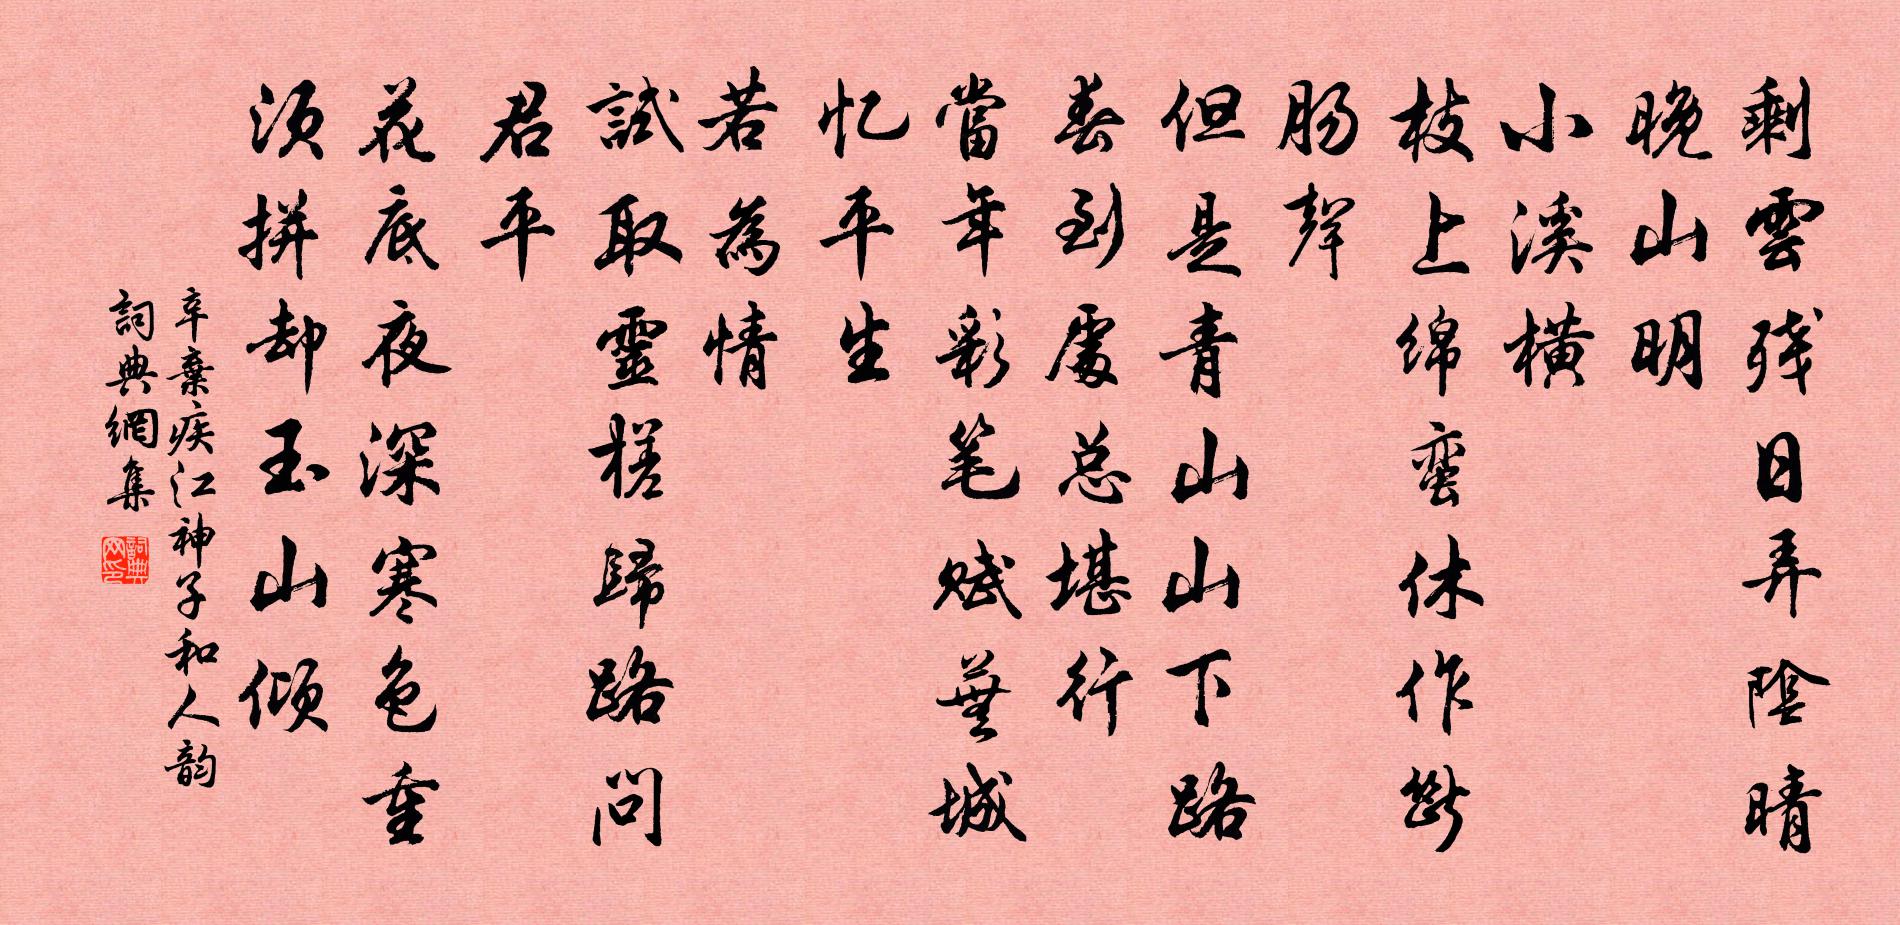 剩雲残日弄陰晴
晚山明
小溪橫
枝上绵蛮休作斷
肠聲
但是青山山下路
春到處总堪行
當年彩笔赋蕪城
忆平生
若為情
試取靈槎歸路問
君平
花底夜深寒色重
须拼却玉山倾
辛棄疾江神子和人韵
詞典網集
詞典網印